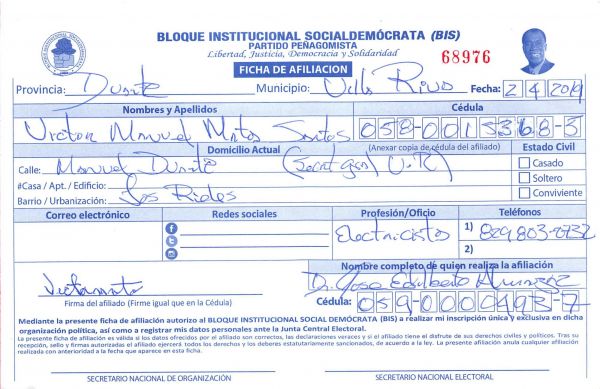 BLOQUE INSTITUCIONAL SOCIALDEMÓCRATA (BIS)
PARTIDO PEÑAGOMISTA
Libertad, Justicia, Democracia y Solidaridad
68976
FICHA DE AFILIACION
Provincia: Duarte Municipio: Villa Riva Fecha: 2 4 2019
Nombres y Apellidos Cédula
Victor Manuel Matos Santos 058-0015368-3
Domicilio Actual (Anexar copia de cédula del afiliado) Estado Civil
Calle: Manuel Duarte (Secret Gral V.R) Casado
#Casa / Apt. / Edificio: Soltero
Barrio / Urbanización: Los Rieles Conviviente
Correo electrónico Redes sociales Profesión/Oficio Teléfonos
Electricistas 1) 829-803-0732
2)
Nombre completo de quien realiza la afiliación
Dr. Jose Edilberto
Firma del afiliado (Firme igual que en la Cédula) Cédula: 059-0000493-7
Mediante la presente ficha de afiliación autorizo al BLOQUE INSTITUCIONAL SOCIAL DEMÓCRATA (BIS) a realizar mi inscripción única y exclusiva en dicha
organización política, así como a registrar mis datos personales ante la Junta Central Electoral.
La presente ficha de afiliación es válida si los datos ofrecidos por el afiliado son correctos, las declaraciones veraces y si el afiliado tiene el disfrute de sus derechos civiles y políticos. Tras su
recepción, sello y firmas autorizadas el afiliado ejercerá todos los derechos y los deberes estatutariamente sancionados, de acuerdo a la ley. La presente afiliación anula cualquier afiliación
realizada con anterioridad a la fecha que aparece en esta ficha.
SECRETARIO NACIONAL DE ORGANIZACIÓN SECRETARIO NACIONAL ELECTORAL